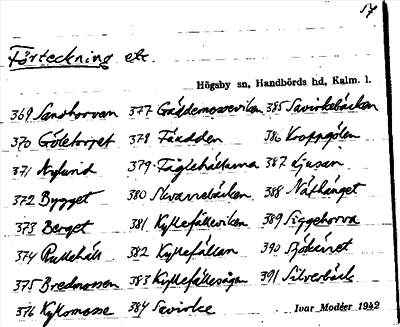 17
Förteckning etc.
Högsby sn, Handbörds hd, Kalm. l.
369 Sandtorvan 377 Gäddemosseviken 385 Savirkebäcken
370 Göletorpet 378 Fäadden 386 Kroppgölen
371 Nylund 379 387 Ljusan
372 Bygget 380 Skvarrebäcken 388
373 Berget 381 Kyllefälleviken 389 Siggehorva
374 Rallehäll 382 Kyllefällan 390
375 Bredmossen 383 Kyllefällesågen 391 Silverbäck
376 Kylsmosse 384 Savirke
Ivar Modéer 1942